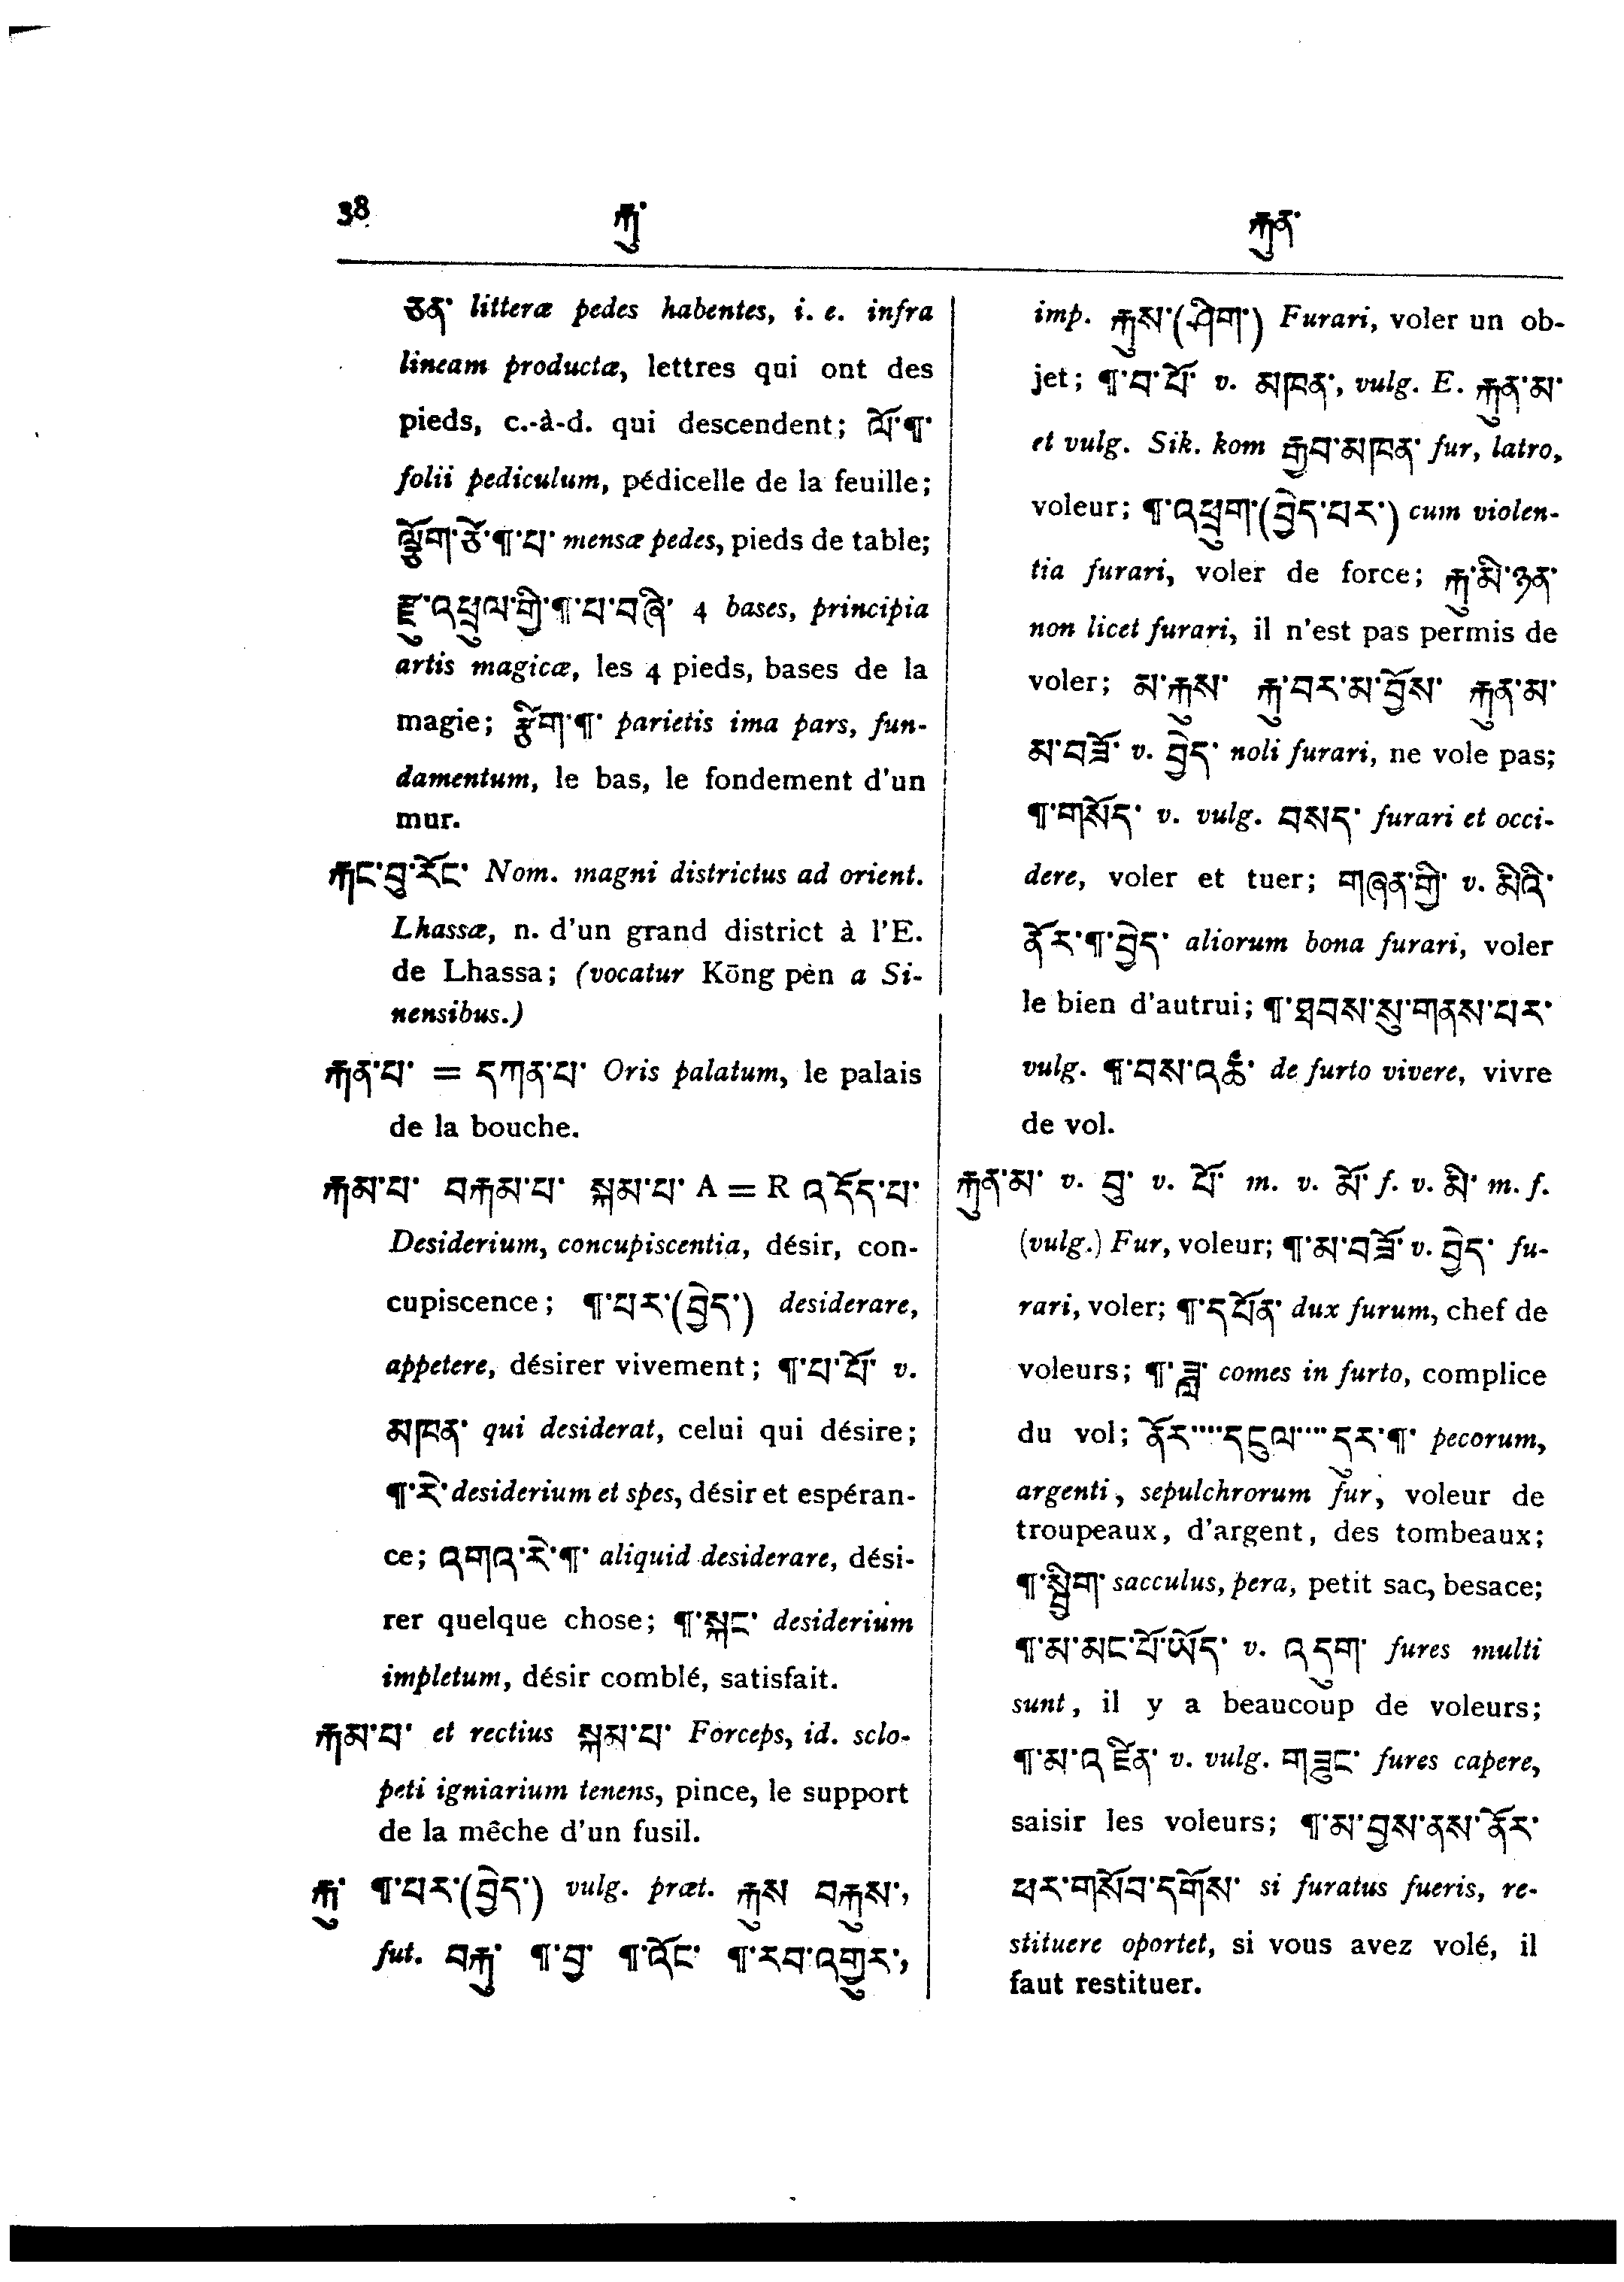 38 རྐུ་ རྐུན་
ཅན་ litteræ pedes habentes, i. e. infra
lineam productæ, lettres qui ont des
pieds, c.-à-d. qui descendent; ལོ་¶་
folii pediculum, pédicelle de la feuille;
ལྕོག་ཙེ་¶་པ་ mensæ pedes, pieds de table;
རྫུ་འཕྲུལ་གྱི་¶་པ་བཞི་ 4 bases, principia
artis magicæ, les 4 pieds, bases de la
magie; རྩིག་¶་ parietis ima pars, fun-
damentum, le bas, le fondement d'un
mur.
རྐང་བུ་རོང་ Nom. magni districtus ad orient.
Lhassæ, n. d'un grand district à l'E.
de Lhassa; (vocatur Kōng pèn a Si-
nensibus.)
རྐན་པ་ = དཀན་པ་ Oris palatum, le palais
de la bouche.
རྐམ་པ་ བརྐམ་པ་ སྐམ་པ་ A = R འདོད་པ་
Desiderium, concupiscentia, désir, con-
cupiscence; ¶་པར་(བྱེད་) desiderare,
appetere, désirer vivement; ¶་པ་པོ་ v.
མཁན་ qui desiderat, celui qui désire;
¶་རེ་ desiderium et spes, désir et espéran-
ce; འགའ་རེ་¶་ aliquid desiderare, dési-
rer quelque chose; ¶་སྐང་ desiderium
impletum, désir comblé, satisfait.
རྐམ་པ་ et rectius སྐམ་པ་ Forceps, id. sclo-
peti igniarium tenens, pince, le support
de la mêche d'un fusil.
རྐུ་ ¶་པར་(བྱེད་) vulg. præt. རྐུས བརྐུས་,
fut. བརྐུ་ ¶་བྱ་ ¶་འོང་ ¶་རབ་འགྱུར་,
imp. རྐུས་(ཤིག་) Furari, voler un ob-
jet; ¶་བ་པོ་ v. མཁན་, vulg. E. རྐུན་མ་
et vulg. Sik. kom རྒྱབ་མཁན་ fur, latro,
voleur; ¶་འཕྲུག་(བྱེད་པར་) cum violen-
tia furari, voler de force; རྐུ་མི་ཉན་
non licet furari, il n'est pas permis de
voler; མ་རྐུས་ རྐུ་བར་མ་བྱོས་ རྐུན་མ་
མ་བཟོ་ v. བྱེད་ noli furari, ne vole pas;
¶་གསོད་ v. vulg. བསད་ furari et occi-
dere, voler et tuer; གཞན་གྱི་ v. མིའི་
ནོར་¶་བྱེད་ aliorum bona furari, voler
le bien d'autrui; ¶་ཐབས་སུ་གནས་པར་
vulg. ¶་བས་འཚོ་ de furto vivere, vivre
de vol.
རྐུན་མ་ v. བུ་ v. པོ་ m. v. མོ་ f. v. མི་ m. f.
(vulg.) Fur, voleur; ¶་མ་བཟོ་ v. བྱེད་ fu-
rari, voler; ¶་དཔོན་ dux furum, chef de
voleurs; ¶་ཟླ་ comes in furto, complice
du vol; ནོར་....དངུལ་....དུར་¶་ pecorum,
argenti, sepulchrorum fur, voleur de
troupeaux, d'argent, des tombeaux;
¶་སྒྲིག་ sacculus, pera, petit sac, besace;
¶་མ་མང་པོ་ཡོད་ v. འདུག་ fures multi
sunt, il y a beaucoup de voleurs;
¶་མ་འཛིན་ v. vulg. གཟུང་ fures capere,
saisir les voleurs; ¶་མ་བྱས་ནས་ནོར་
ཕར་གསོབ་དགོས་ si furatus fueris, re-
stituere oportet, si vous avez volé, il
faut restituer.